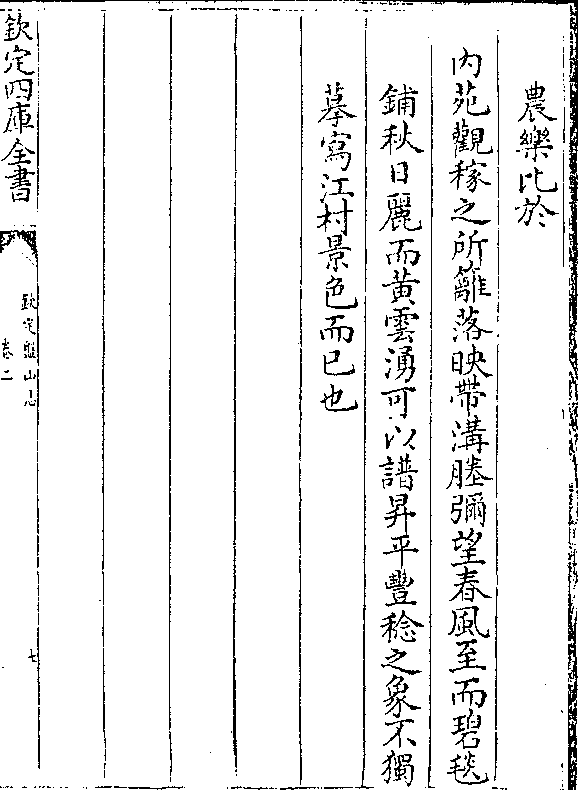 農樂比於
內苑觀稼之所籬落映帶溝塍彌望春風至而碧毯
鋪秋日麗而黃雲湧可以譜昇平豐稔之象不獨
摹寫江村景色而已也
欽定四庫全書
欽定盤山志
卷二
七